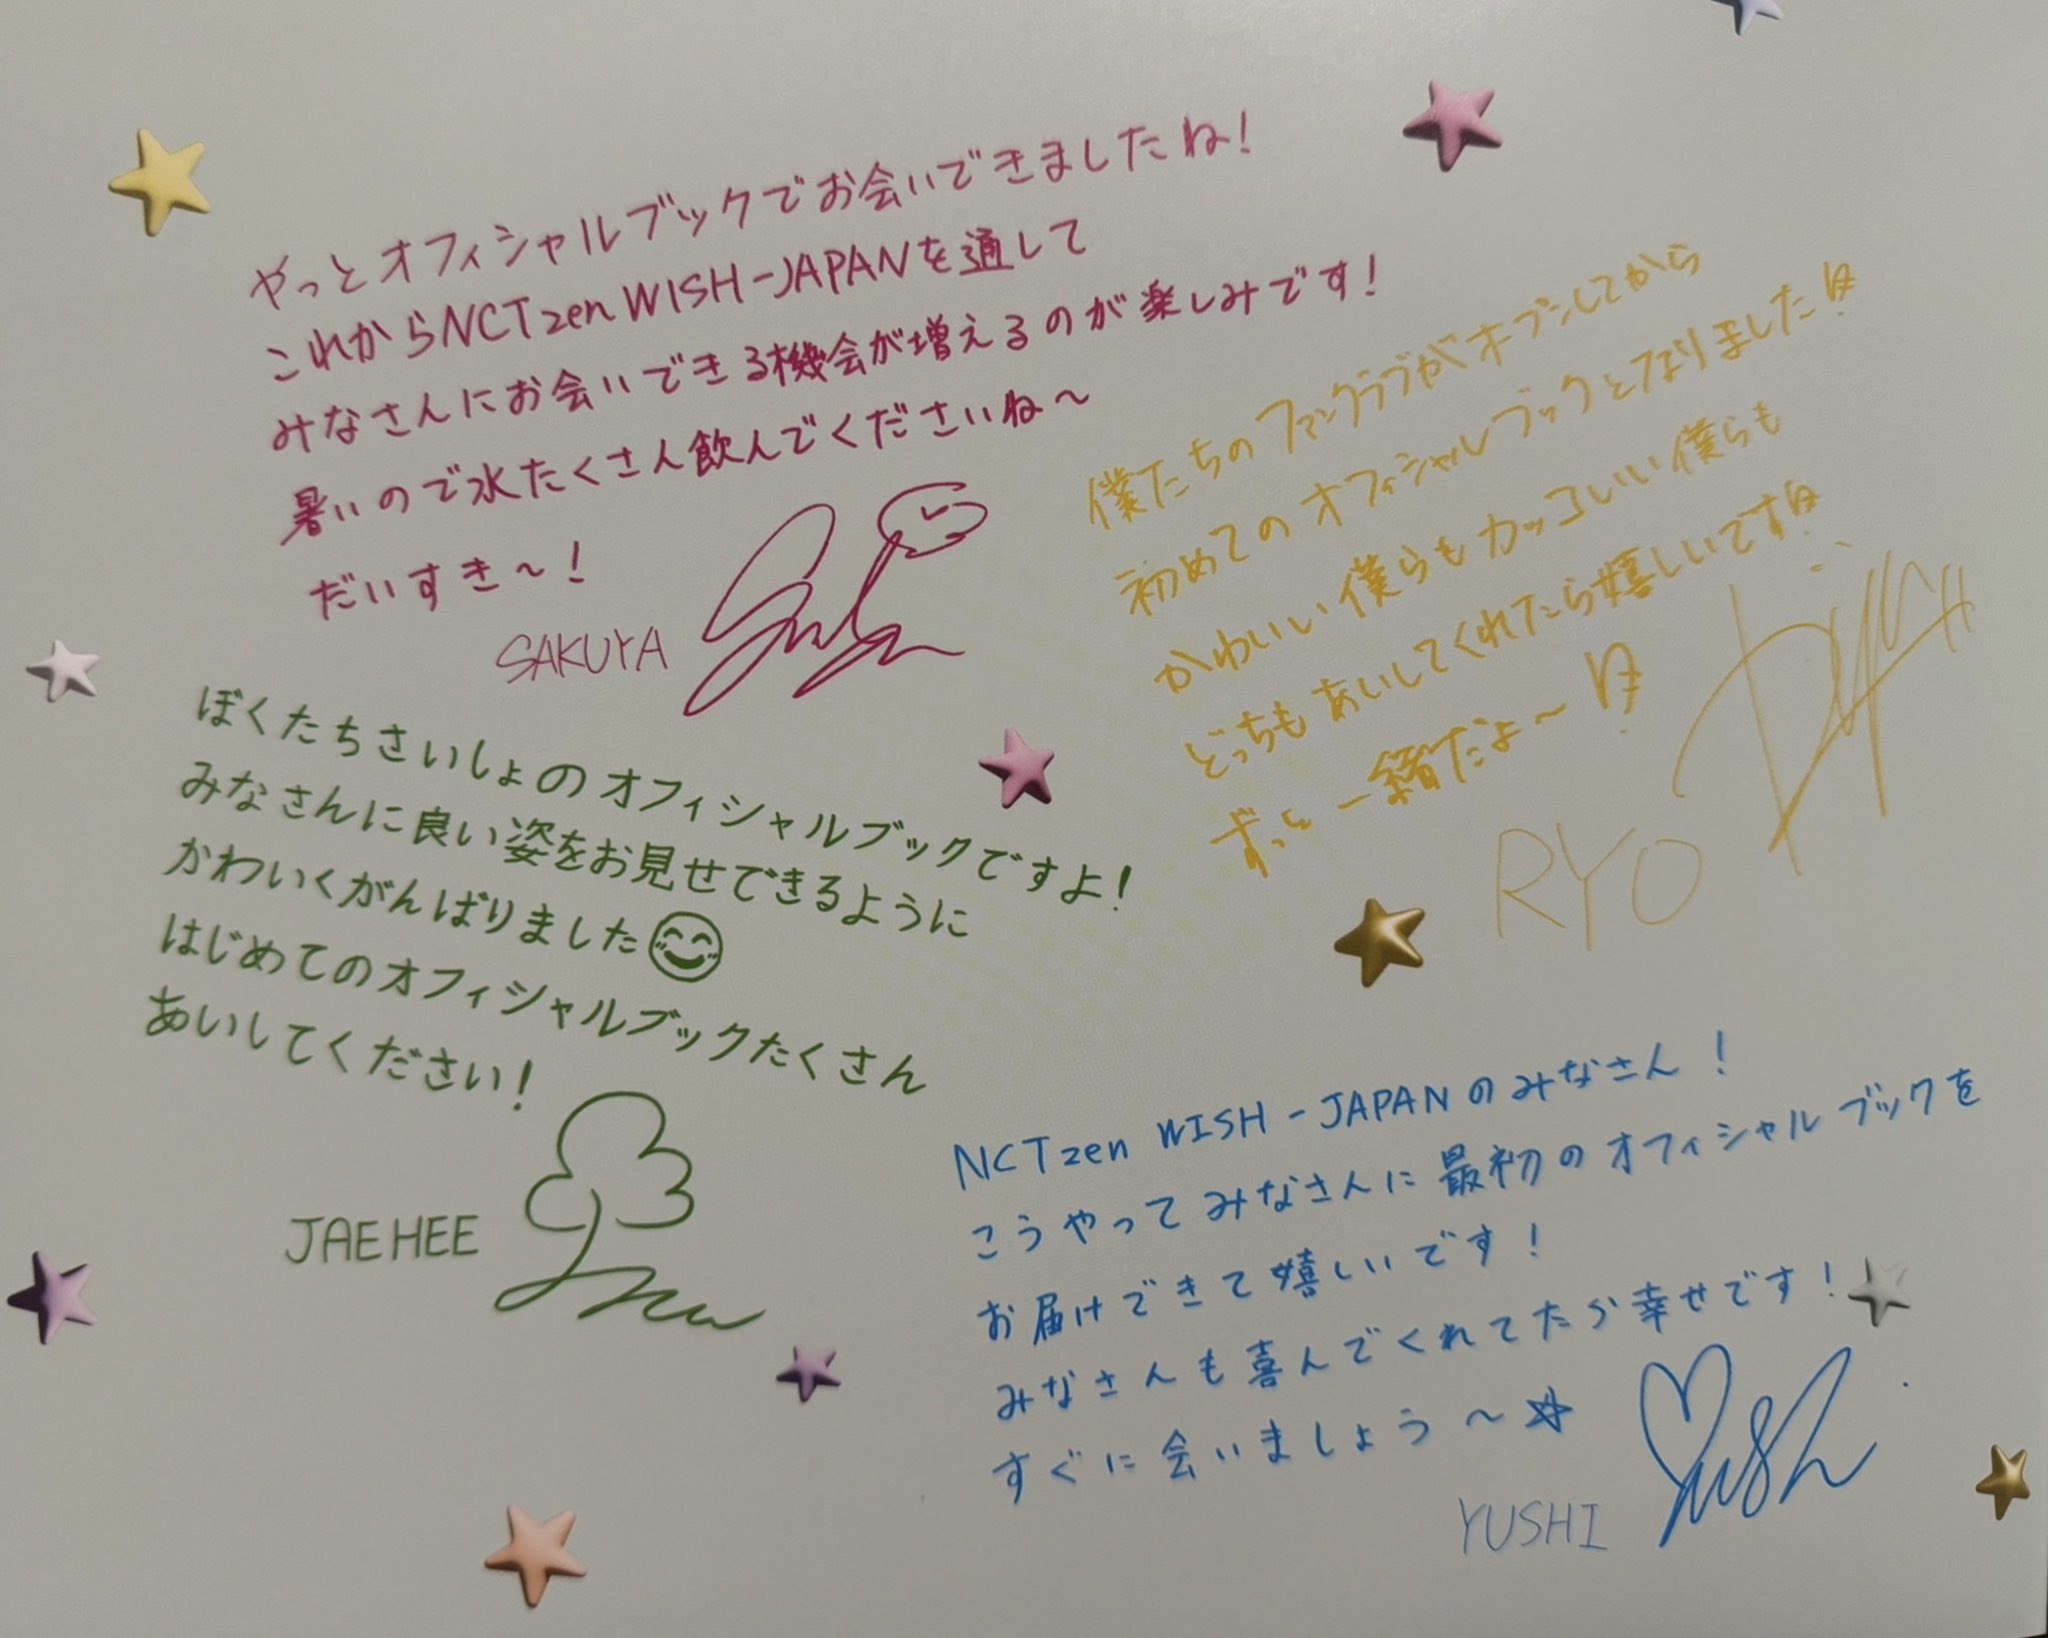 やっとオフィシャルブックでお会いできましたね!
これからNCTzen WISH-JAPANを通して
みなさんにお会いできる機会が増えるのが楽しみです!
暑いので水たくさん飲んでくださいね〜
だいすき〜!
SAKUYA
僕たちのファンクラブがオープンしてから
初めてのオフィシャルブックとなりました!!
かわいい僕らもカッコいい僕らも
どっちもあいしてくれたら嬉しいです!!
ずっと一緒だよ〜!!
RYO
ぼくたちさいしょのオフィシャルブックですよ!
みなさんに良い姿をお見せできるように
かわいくがんばりました😊
はじめてのオフィシャルブックたくさん
あいしてください!
JAEHEE
NCTzen WISH-JAPANのみなさん!
こうやってみなさんに最初のオフィシャルブックを
お届けできて嬉しいです!
みなさんも喜んでくれてたら幸せです!
すぐに会いましょう〜☆
Yushi
YUSHI